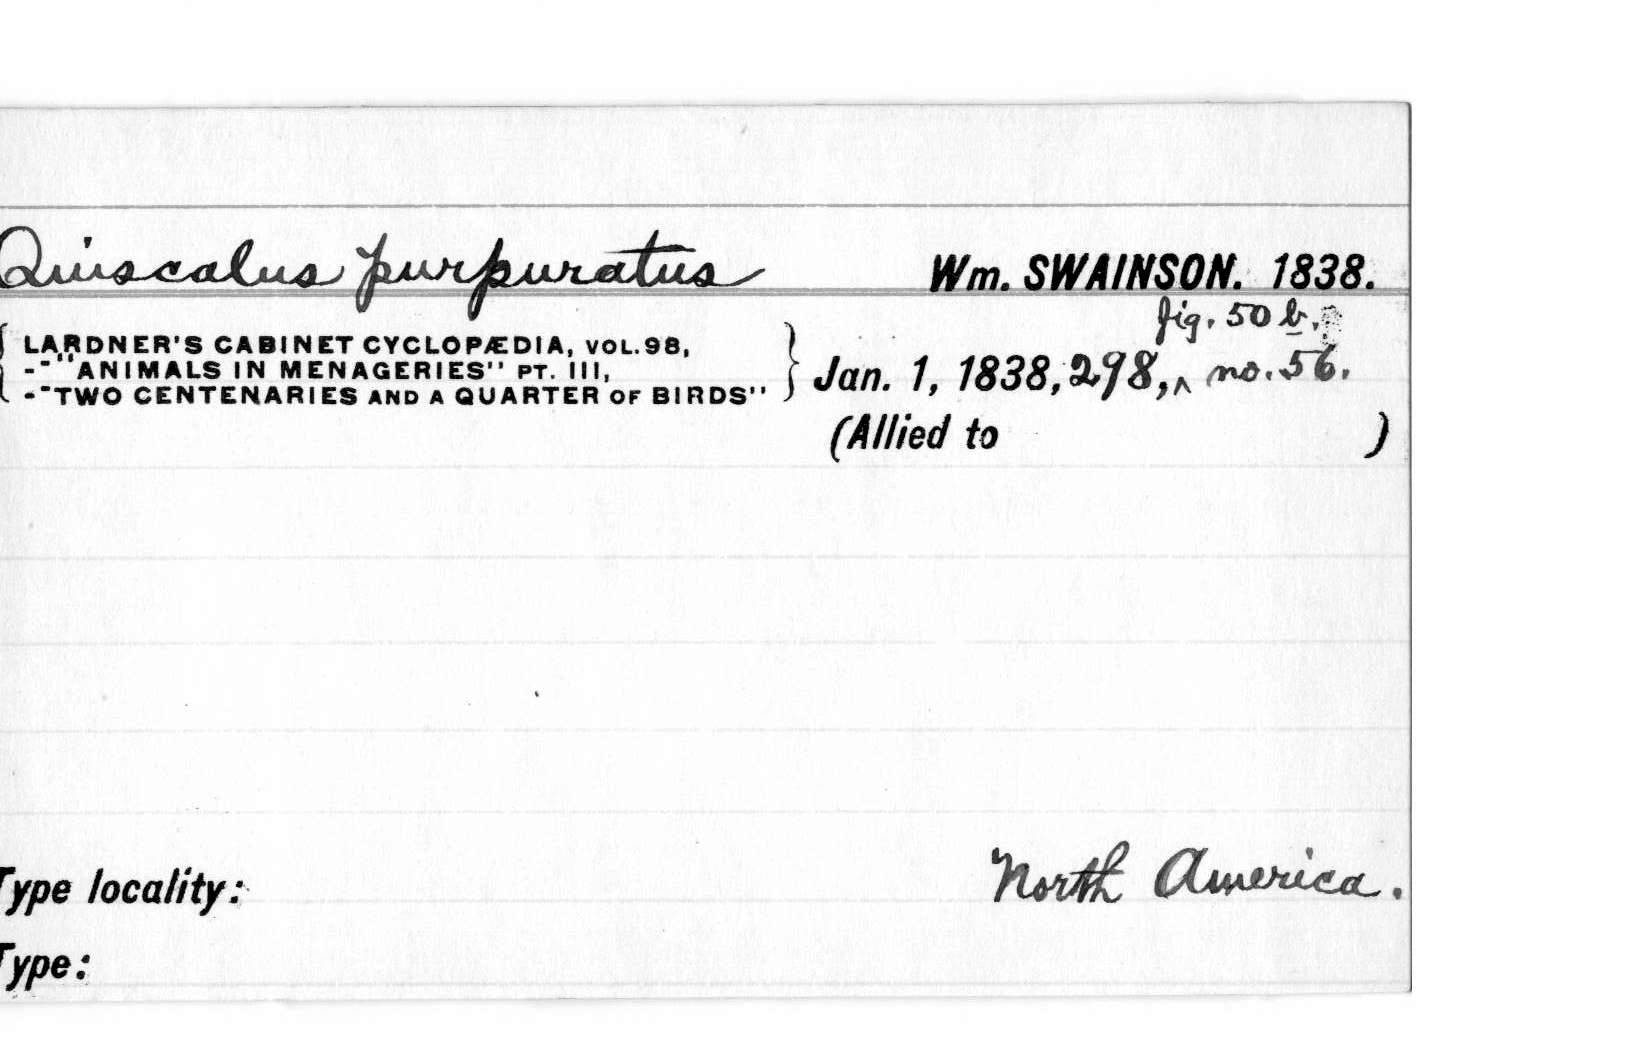 Quiscalus purpuratus Wm. SWAINSON. 1838.
fig. 50 b.,
LARDNER'S CABINET CYCLOPÆDIA, VOL. 98,
-"ANIMALS IN MENAGERIES" PT. III,
-"TWO CENTENARIES AND A QUARTER OF BIRDS"
Jan. 1, 1838, 298,^ no. 56.
(Allied to )
Type locality: North America.
Type: